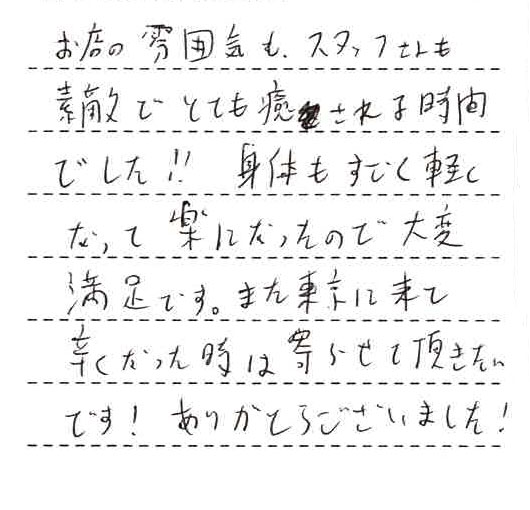 お店の雰囲気も、スタッフさんも
素敵でとても癒される時間
でした!! 身体もすごく軽く
なって楽になったので大変
満足です。また東京に来て
辛くなった時は寄らせて頂きたい
です! ありがとうございました!